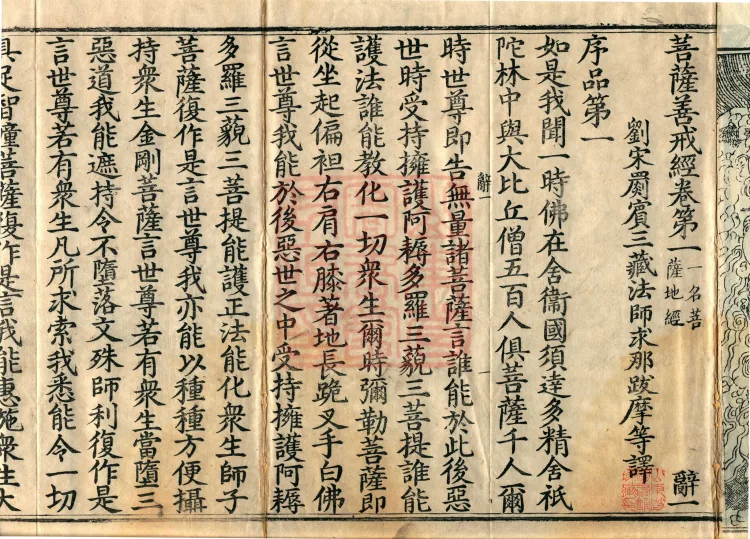 菩薩善戒經卷第一 一名菩薩地經 辭一
劉宋罽賓三藏法師求那跋摩等譯
序品第一
如是我聞一時佛在舍衞國須達多精舍祇
陀林中與大比丘僧五百人俱菩薩千人爾
辭一
時世尊即告無量諸菩薩言誰能於此後惡
世時受持擁護阿耨多羅三藐三菩提誰能
護法誰能教化一切衆生爾時彌勒菩薩即
從坐起偏袒右肩右膝著地長跪叉手白佛
言世尊我能於後惡世之中受持擁護阿耨
多羅三藐三菩提能護正法能化衆生師子
菩薩復作是言世尊我亦能以種種方便攝
持衆生金剛菩薩言世尊若有衆生當墮三
惡道我能遮持令不墮落文殊師利復作是
言世尊若有衆生凡所求索我悉能令一切
具足智幢菩薩復作是言我能惠施衆生大